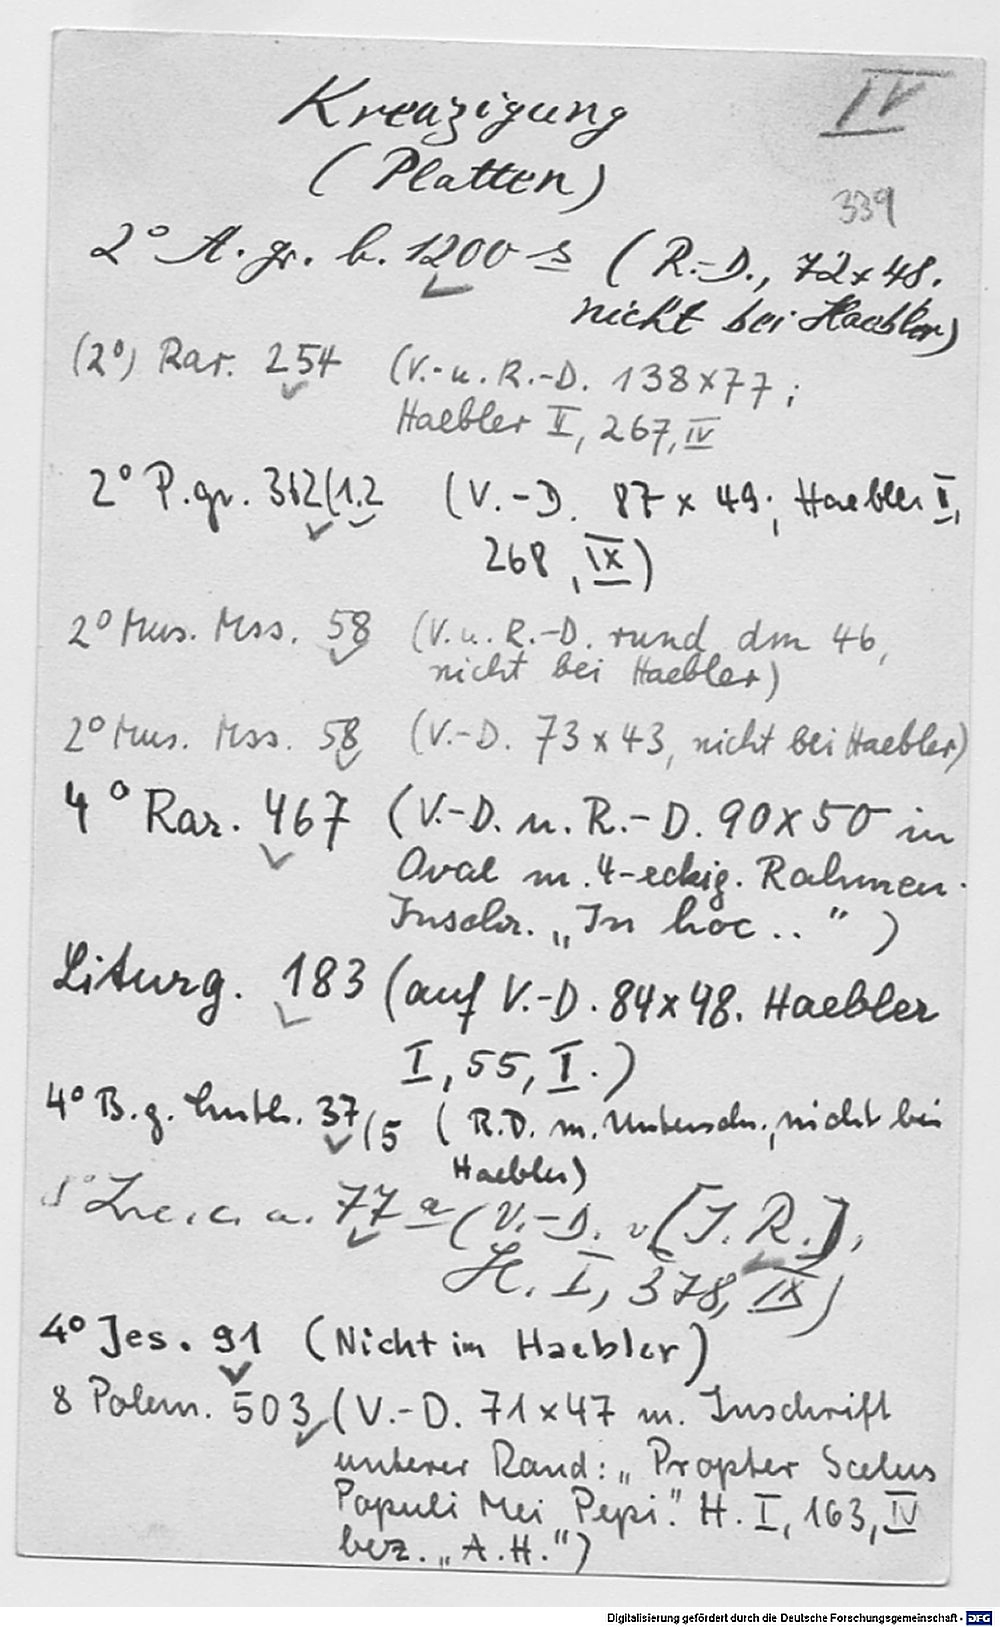 Kreuzigung
IV
(Platten)
339
2° A. gr. b. 1200 s (R.-D., 72x48.
nicht bei Haebler)
(2°) Rar. 254 (V.- u. R.-D. 138x77;
Haebler II, 267, IV
2° P. gr. 312(1.2 (V.-D. 87 x 49; Haebler II,
268, IX)
2° Mus. Mss. 58 (V. u. R.-D. rund dm 46,
nicht bei Haebler)
2° Mus. Mss. 58 (V.-D. 73 x 43, nicht bei Haebler)
4° Rar. 467 (V.-D. u. R.-D. 90x50 in
Oval m. 4-eckig. Rahmen.
Inschr. „In hoc .. ")
Liturg. 183 (auf V.-D. 84x48. Haebler
I, 55, I.)
4° B. g. 37/5 (R.D. m. Unterschr., nicht bei
Haebler)
c. a. 77 a (V.-D. v [J. R.],
H. I, 378, IX)
4° Jes. 91 (Nicht im Haebler)
8 Polem. 503 (V.-D. 71x47 m. Inschrift
unterer Rand: „Propter Scelus
Populi Mei Pepi." H. I, 163, IV
bez. „A.H.")
Digitalisierung gefördert durch die Deutsche Forschungsgemeinschaft - DFG